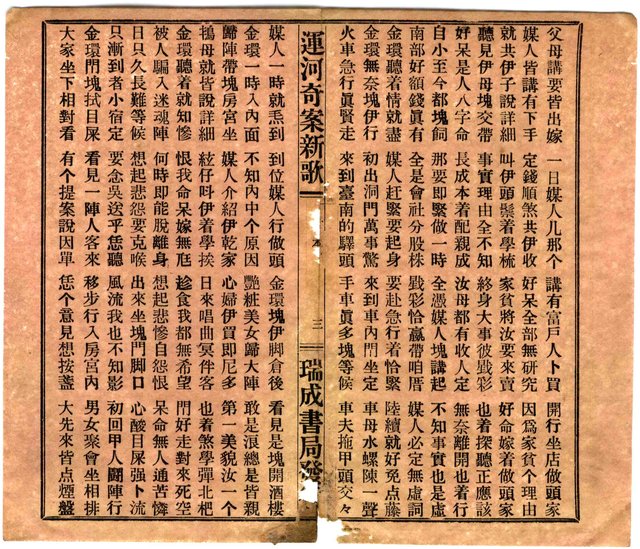 父母講要皆出嫁 一日媒人几那个 講有富戶人卜買 開行坐店做頭家
媒人皆講有下手 定錢順煞共伊收 好呆全部無研究 因為家貧个理由
就共伊子說詳細 叫伊頭鬃着學梳 家貧將汝要來賣 好命嫁着做頭家
聽見伊母塊交帶 事實理由全不知 終身大事彼戥彩 也着探聽正應該
好呆是人八字命 長成本着配親成 汝母都有收人定 無奈離開也着行
自小至今都塊飼 那要即緊做一時 全憑媒人塊講起 不知事實也是虛
南部好額錢真有 全是會社分股株 戥彩恰贏帶咱厝 媒人必定無虛詞
金環聽着情就盡 媒人赶緊要起身 要赴急行着恰緊 陸續就好免点藤
金環無奈塊伊行 初出洞門萬事驚 來到車內門坐定 車母水螺陳一聲
火車急行眞賢走 來到臺南的驛頭 手車眞多塊等候 車夫拖甲頭交々
運河奇案新歌 三 瑞成書局發
媒人一時就焄到 到位媒人行做頭 金環塊伊脚倉後 看見是塊開酒樓
金環一時入內面 不知內中个原因 艷粧美女歸大陣 敢是滾總是皆親
歸陣帶塊房宮坐 媒人介紹伊乾家 心婦伊買即尼多 第一美貌汝一个
鴇母就皆說詳細 絃仔叫伊着學挨 日來唱曲冥伴客 也着煞學彈北杷
金環聽着就知慘 恨我命呆嫁無尫 趁食我都無希望 門好走對來死空
被人騙入迷魂陣 何時即能脫離身 想起悲慘自怨恨 呆命無人通苦憐
日只久長難等候 想起悲怨要克喉 出來坐塊門脚口 心酸目屎强卜流
只漸到者小宿定 要念吳送乎恁聽 風流我也不知影 初回甲人鬪陣行
金環門塊拭目屎 看見一陣人客來 移步行入房宮內 男女聚會坐相排
大家坐下相對看 有个提案說因單 恁个意見想按盞 大先來皆点煙盤